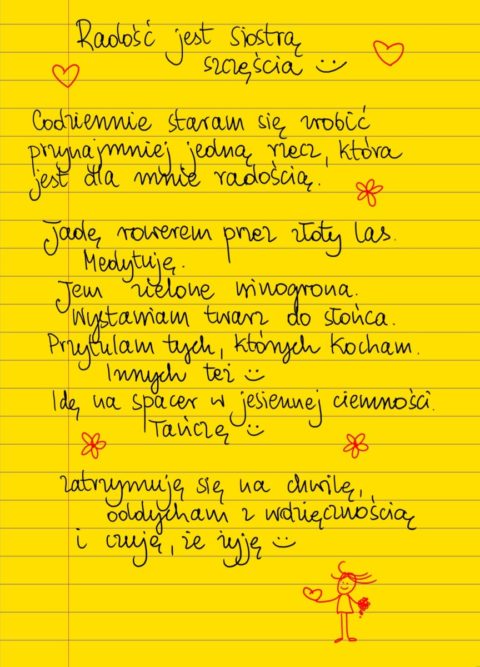 Radość jest siostrą
szczęścia :)
Codziennie staram się zrobić
przynajmniej jedną rzecz, która
jest dla mnie radością.
Jadę rowerem przez złoty las.
Medytuję.
Jem zielone winogrona.
Wystawiam twarz do słońca.
Przytulam tych, których kocham.
Innych też :)
Idę na spacer w jesiennej ciemności.
Tańczę :)
zatrzymuję się na chwilę,
oddycham z wdzięcznością
i czuję, że żyję :)